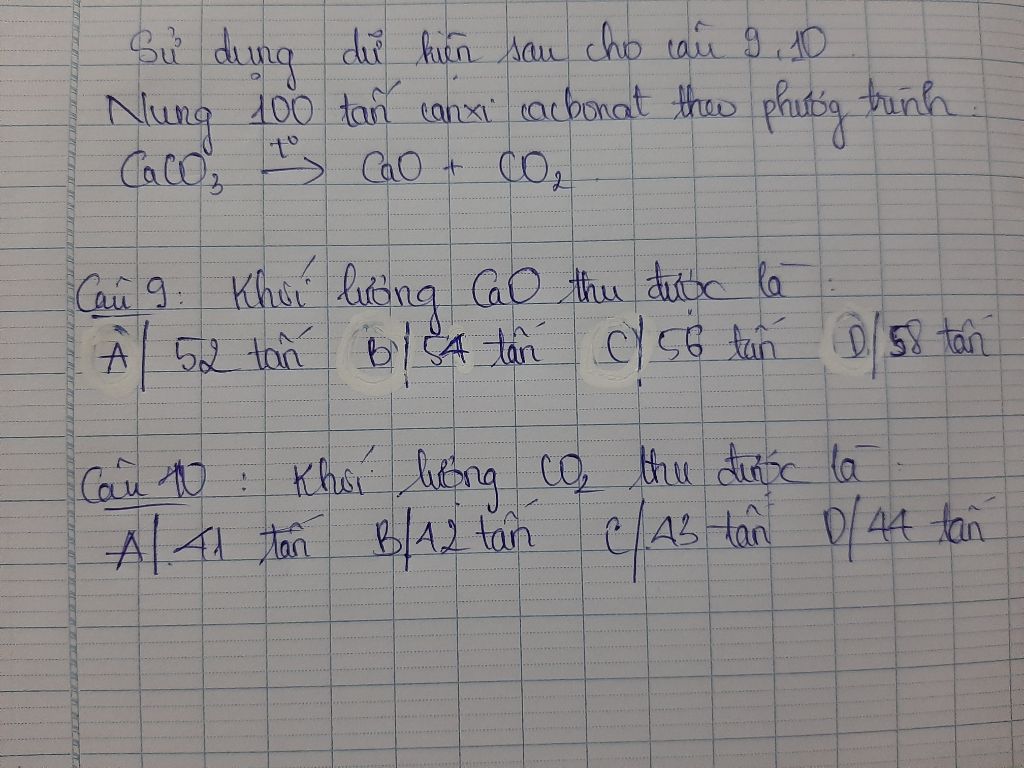 Sử dụng dữ kiện sau cho câu 9, 10
Nung 100 tấn canxi cacbonat theo phương trình:
CaCO₃ t° → CaO + CO₂
Câu 9: Khối lượng CaO thu được là:
A/ 52 tấn B/ 54 tấn C/ 56 tấn D/ 58 tấn
Câu 10: Khối lượng CO₂ thu được là
A/ 41 tấn B/ 42 tấn C/ 43 tấn D/ 44 tấn